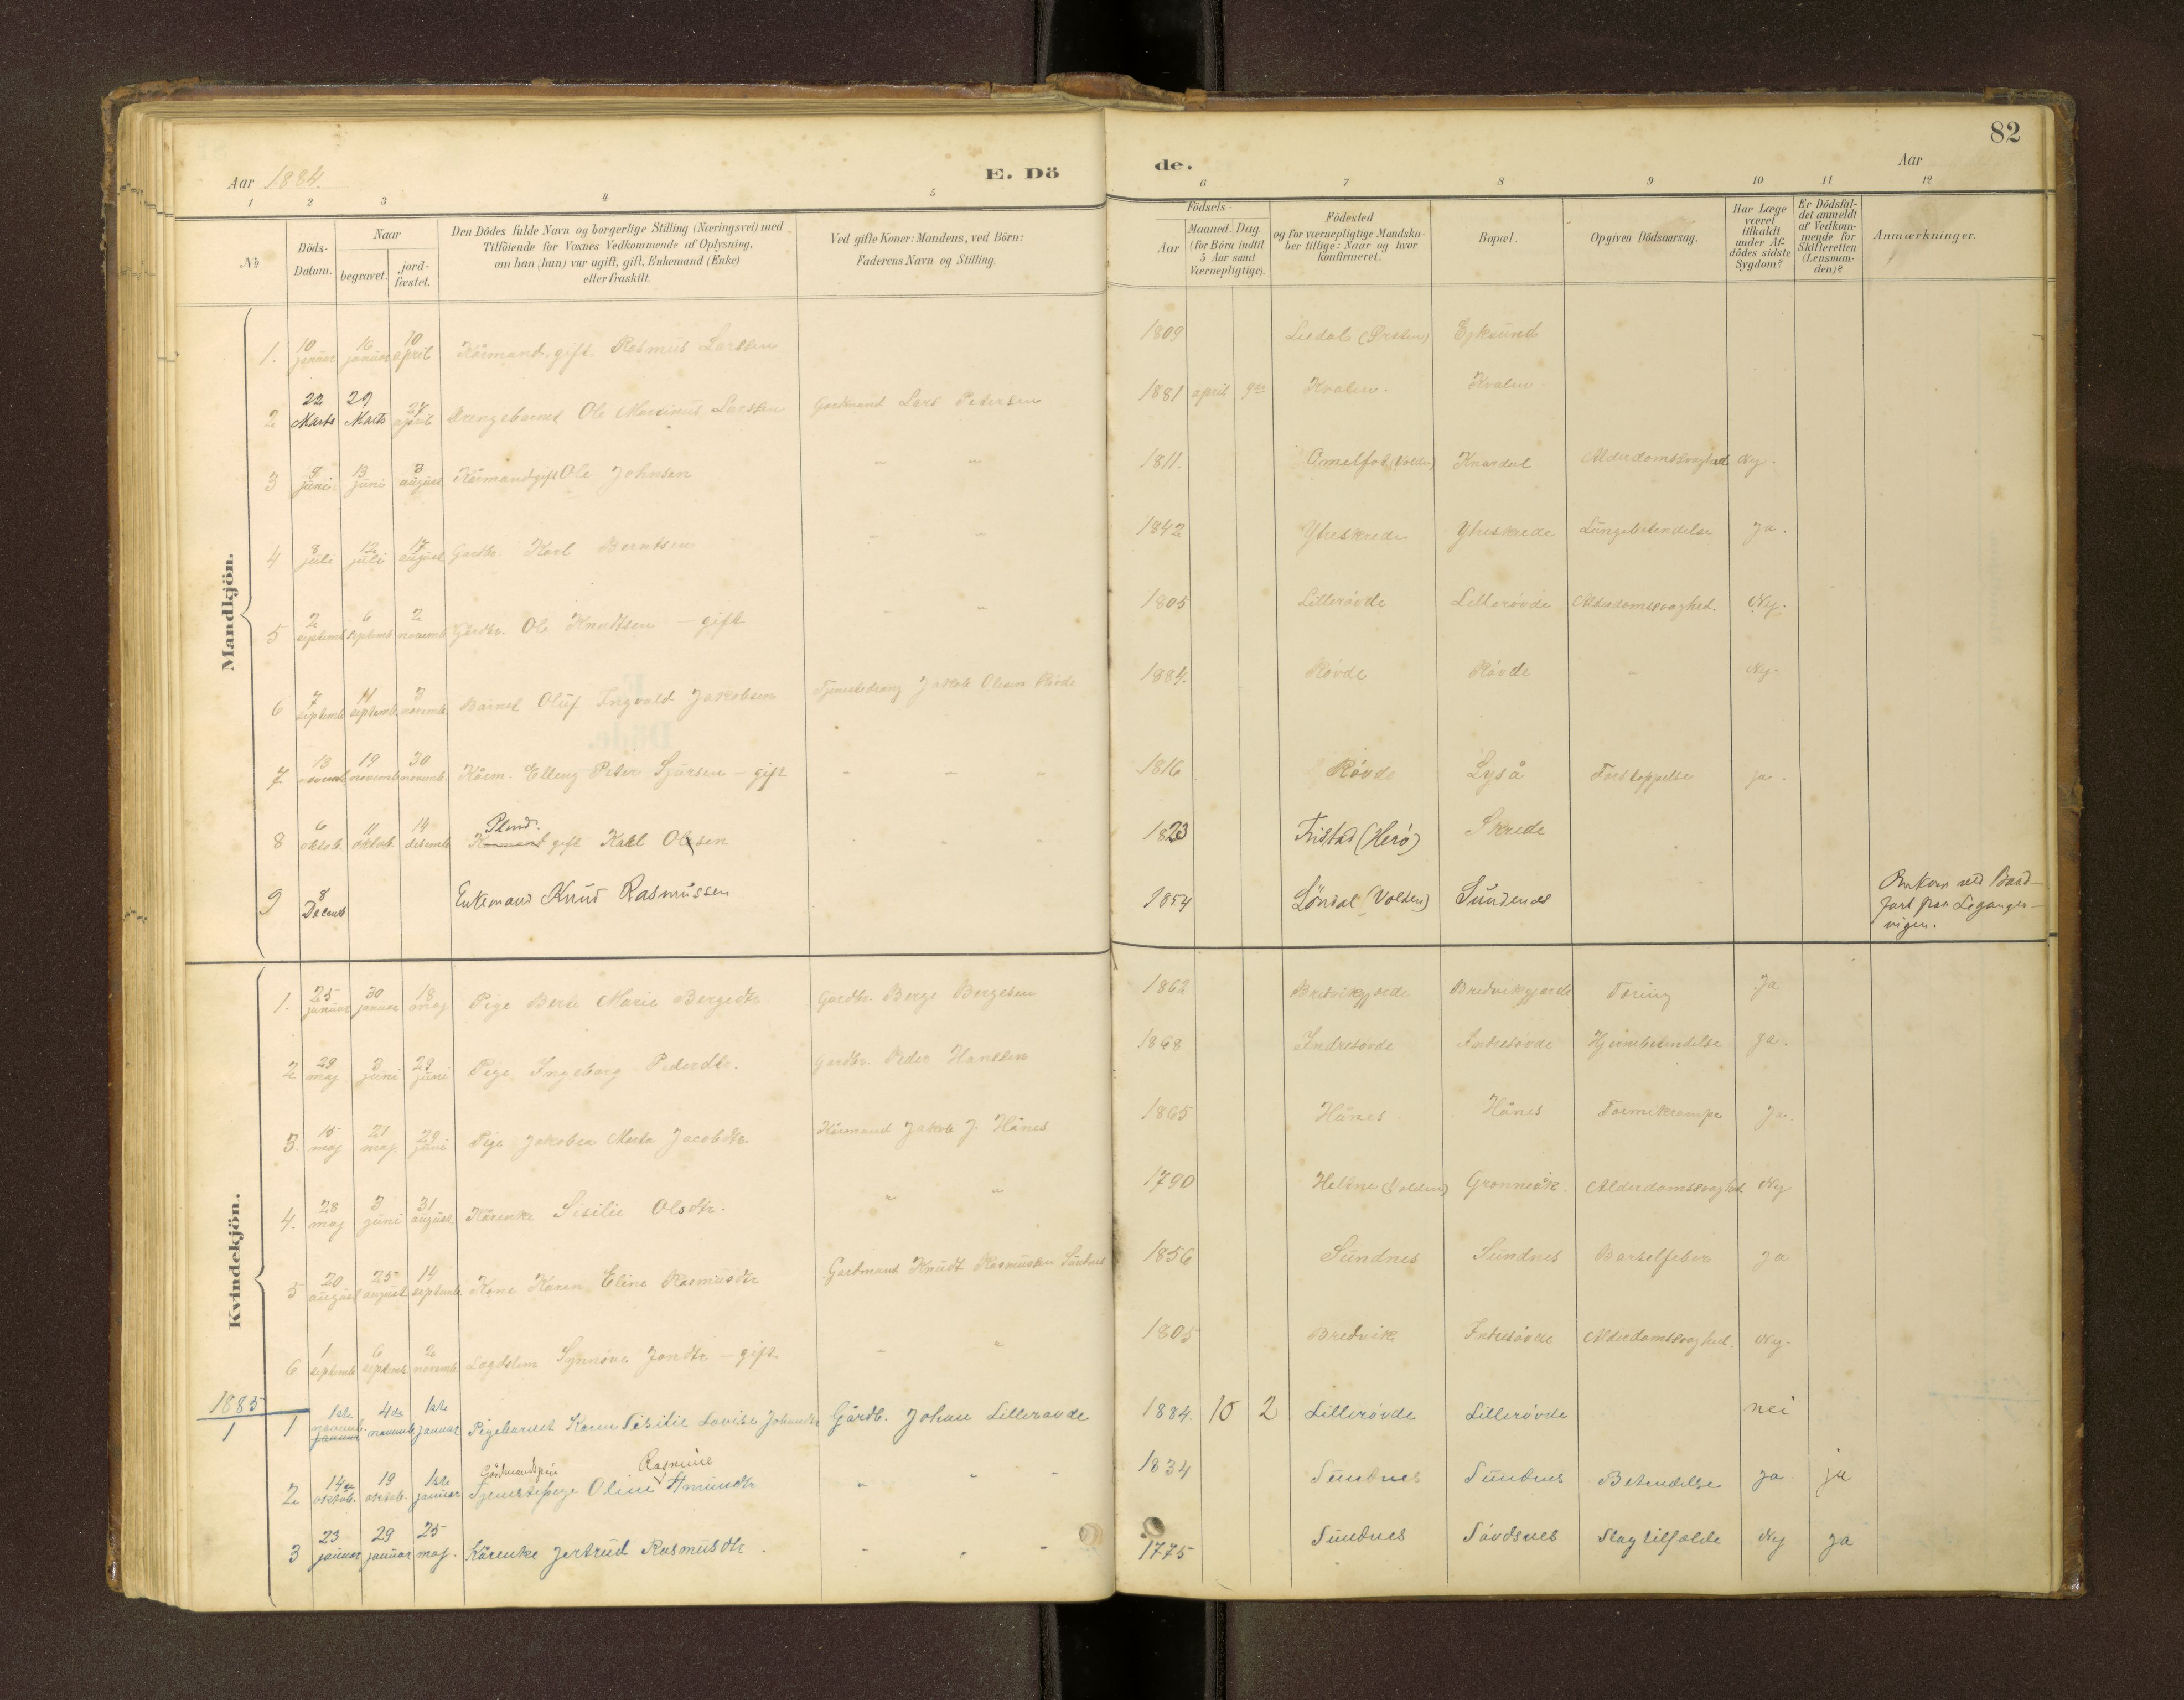 82
Aar 1884. E. Dö de. Aar
1 2 3 4 5 6 7 8 9 10 11 12
№
Döds-Datum.
Naar
begravet.
jord-fæstet.
Den Dödes fulde Navn og borgerlige Stilling (Næringsvei) med
Tilföiende for Voxnes Vedkommende af Oplysning,
om han (hun) var ugift, gift, Enkemand (Enke)
eller fraskilt.
Ved gifte Koner: Mandens, ved Börn:
Faderens Navn og Stilling.
Födsels-
Aar
Maaned. Dag.
(for Börn indtil
5 Aar samt
Værnepligtige).
Födested
og for værnepligtige Mandska-
ber tillige: Naar og hvor
konfirmeret.
Bopæl.
Opgiven Dödsaarsag.
Har Læge
været
tilkaldt
under Af-
dödes sidste
Sygdom?
Er Dödsfal-
det anmeldt
af Vedkom-
mende for
Skifteretten
(Lensman-
den)?
Anmærkninger.
Mandkjön.
1. 10 januar 16 januar 10 april Kårmand, gift. Rasmus Larssen 1809 Liedal (Ørsten) Eiksund
2 22 Marts 29 Marts 27 april Drengebarnet Ole Martinus Larssen Gardmand Lars Petersen 1881 april 9de Kvalen. Kvalen
3 9 juni 13 juni 3 august Kårmand gift Ole Johnsen " " 1811. Omelfot (Volden) Knardal Alderdomssvaghed Nej.
4 8 juli 12 juli 17 august Gardbr. Karl Berntsen " " 1842 Ytreskrede Ytreskrede Lungebetendelse Ja.
5 2 septemb. 6 septemb. 2 novemb. Gårdbr. Ole Knudtsen – gift " 1805 Lillerövde Lillerövde Alderdomssvaghed. Nej.
6 7 septemb. 11 septemb. 3 novemb. Barnet Oluf Ingvald Jakobsen Tjenestedreng Jakob Olesen Rövde 1884. Rövde Rövde – Nej.
7 13 novemb. 19 novemb. 30 novemb. Kårm. Elling Peter Sjursen – gift – – " 1816 Rövde Lyså ja.
8 6 oktob. 11 oktob. 14 desemb. Kårmand Pland. gift Karl Olsen 1823 Fristad (Herö) Skrede
9 8 Decemb Enkemand Knud Rasmussen 1854 Löndal (Volden) Sundnes Omkom ved Baad-
fart fra Leganger-
vigen.
Kvindekjön.
1. 25 januar 30 januar 18 maj Pige Berte Marie Bergedtr. Gardbr. Berge Bergesen 1862 Bredvikgjærde Bredvikgjærde Tæring Ja
2 29 maj 3 juni 29 juni Pige Ingeborg Pederdtr. Gardbr. Peder Hanssen 1868 Indresövde Indresövde Hjernebetendelse ja.
3. 15 maj 21 maj. 29 juni Pige Jakobea Marta Jacobdtr. Kårmand Jakob J. Hånes 1865 Hånes Hånes Tarmekrampe Ja.
4. 28 maj 3 juni 31 august Kårenke Sisilie Olsdtr. " " 1790 Helsne (Volden) Grønnevik. Alderdomssvaghed Nej
5 20 august 25 august 14 septemb. Kone Karen Eline Rasmusdtr Gardmand Knudt Rasmussen Sundnes 1856 Sundnes Sundnes Barselfeber ja
6 1 septemb. 6 septemb. 2 novemb. Lagdslem Synnöve Jondtr – gift " " 1805 Bredvik Indresövde Alderdomssvaghed. Nej.
1885
1
1 1ste novemb. januar 4de novemb. 1ste januar Pigebarnet Karen Sisilie Lovise Johandtr Gårdb. Johan Lillerøvde 1884. 10 2 Lillerövde Lillerövde nei
2 14de oktob. 19 oktob. 1ste januar Tjenestepige Oline Rasmine Amundtr " " " 1834 Sundnes Sundnes Betendelse ja. ja
3 23 januar 29 januar 25 maj. Kårenke Jertrud Rasmusdtr. 1775 Sundnes Sövdsnes Slagtilfælde Nej ja